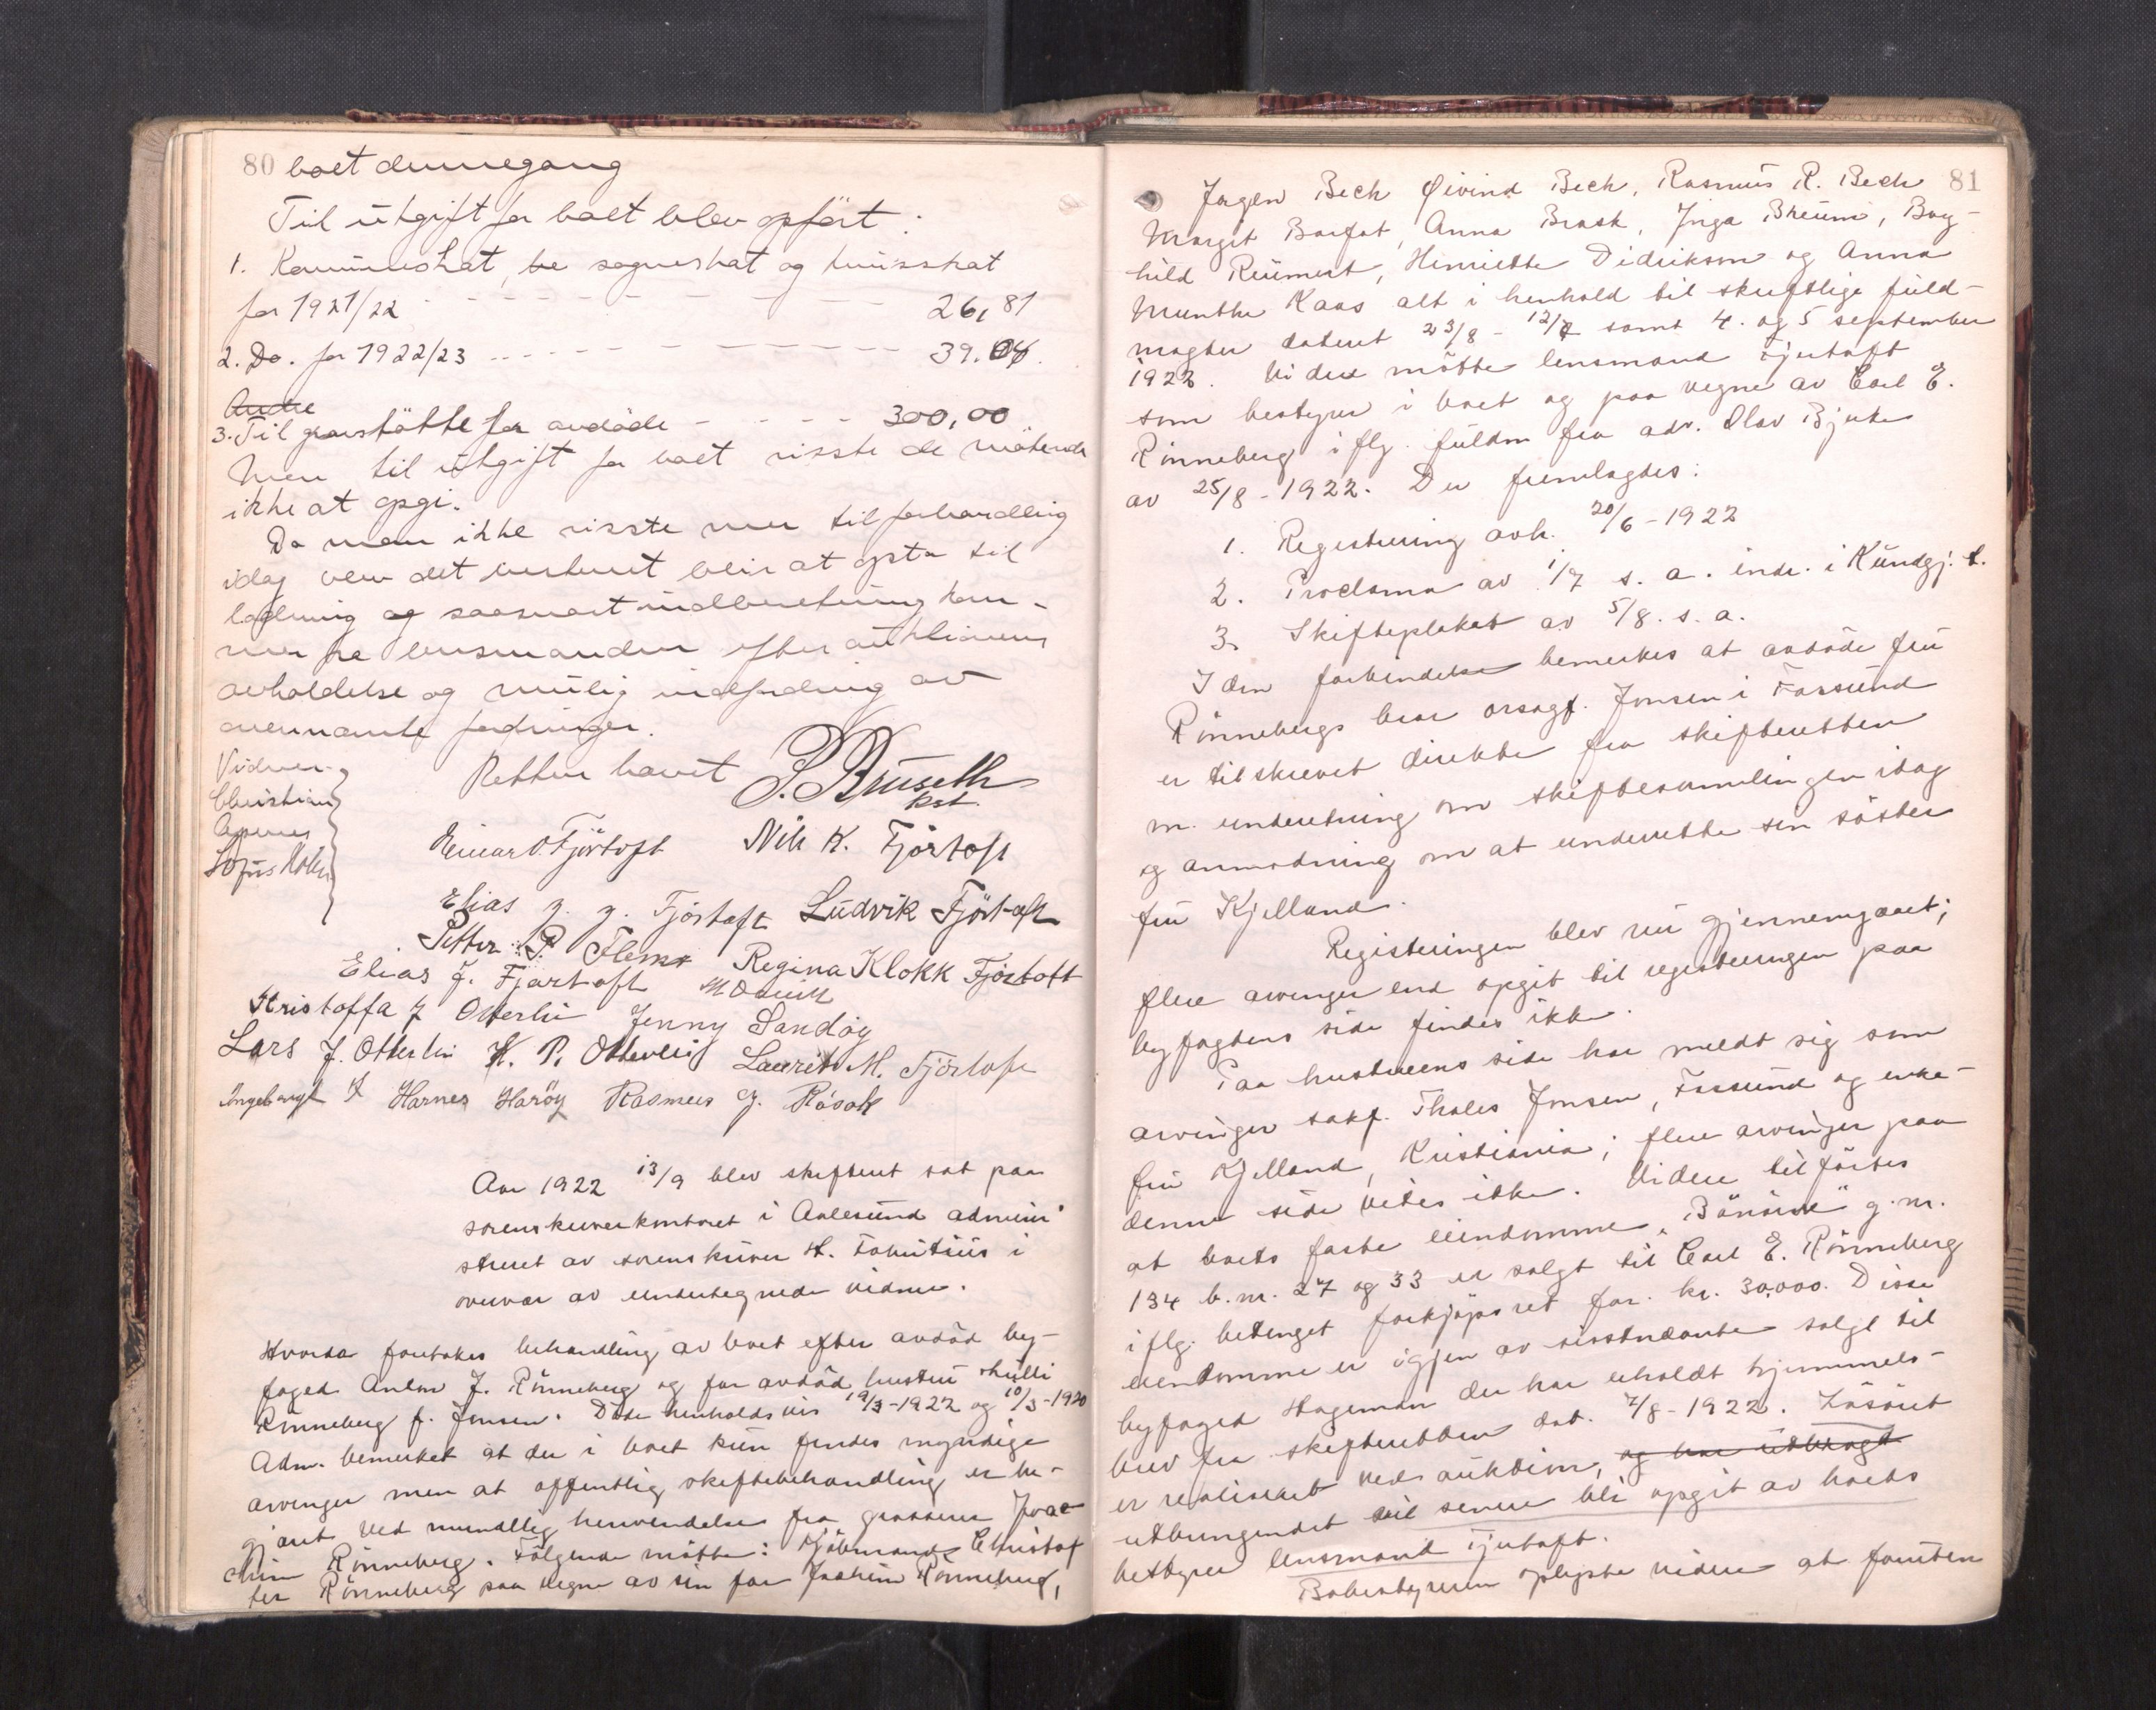 80 boet dennegang
Til utgift for boet blev opført:
1. Kommuneskat, sogneskat og
for 1921/22 26,81
2. Do. for 1922/23 39.04
Andre
3. Til gravstøtte for avdøde 300,00
Mer til utgift for boet visste de møtende
ikke at opgi.
Da man ikke visste mer til forhandling
idag blev det at opsta til
og saasnart indberetning kom-
mer fra lensmanden efter auktionens
avholdelse og mulig indfordring av
ovennævnte fordringer.
Retten hævet P. Bruseth
kst.
Vidner
Christian
Sofus Holm
Einar O. Fjörtoft Nils K. Fjörtoft
Elias J. J. Fjörtoft Ludvik Fjörtoft
Petter P. Flem Regina Klokk Fjörtoft
Elias J. Fjørtoft
Kristoffa J Otterlei Jenny Sandöy
Lars J. Otterlei K. P. Otterlei Laurits M. Fjörtoft
Ingeborg Harnes Haröy Rasmus J. Rösok
Aar 1922 13/9 blev skifteret sat paa
sorenskriverkontoret i Aalesund admini-
streret av sorenskriver H. Fabritius i
overvær av undertegnede vidner.
Hvorda foretokes behandling av boet efter avdød by-
foged Anton J. Rönneberg og før avdød hustru
Rönneberg f. Jonsen. Døde henholdsvis 19/3-1922 og 10/3-1920
Adm. bemerket at der i boet kun findes myndige
arvinger men at offentlig skiftebehandling er be-
gjært ved mundtlig henvendelse fra grosserer Joa-
chim Rönneberg. Følgende møtte: Kjøbmand Christof
fer Rönneberg paa vegne av sin far Joakim Rönneberg,
81
Jørgen Bech Øivind Bech, Rasmus R. Bech
Margit Barfot, Anna Brask, Inga Bheum, Bog-
hild Reumert, Henriette Didrikson og Anna
Munthe Kaas alt i henhold til skriftlige fuld-
magter datert 23/8 - 12/8 samt 4. og 5 september
1922. Videre møtte lensmand Fjørtoft
som bestyrer i boet og paa vegne av Carl E.
Rönneberg iflg. fuldm fra adv. Olav Bjerke
av 25/8-1922. Der fremlagdes:
1. Registrering avh. 20/6-1922
2. Proclama av 1/7 s. a. indr. i Kundgj. t.
3. Skifteplakat av 5/8. s. a.
I den forbindelse bemerkes at avdøde fru
Rönnebergs bror orsagf. Jonsen i Farsund
er tilskrevet direkte fra skifteretten
m. underretning om skiftesamlingen idag
og anmodning om at underrette sin søster
fru Kjelland.
Registeringen blev nu gjennemgaaet;
flere arvinger end opgit til registreringen paa
byfogdens side findes ikke.
Paa hustruens side har meldt sig som
arvinger sakf. Thales Jonsen, Farsund og enke-
fru Kjelland, Kristiania; flere arvinger paa
denne side vites ikke. Videre tilførtes
at boets faste eiendomme „ " g. nr.
134 b. nr. 27 og 33 er solgt til Carl E. Rönneberg
iflg. betinget forkjøpsret for kr. 30,000. Disse
eiendomme er igjen av sisstnævnte solgt til
byfoged Hageman der har erholdt hjemmels-
brev fra skifteretten dat. 7/8-1922. Løsøret
er realisert ved auktion, og har utbragt
utbringendet vil senere bli opgit av boets
bestyrer lensmand Fjørtoft.
Bobestyreren oplyste videre at foruten